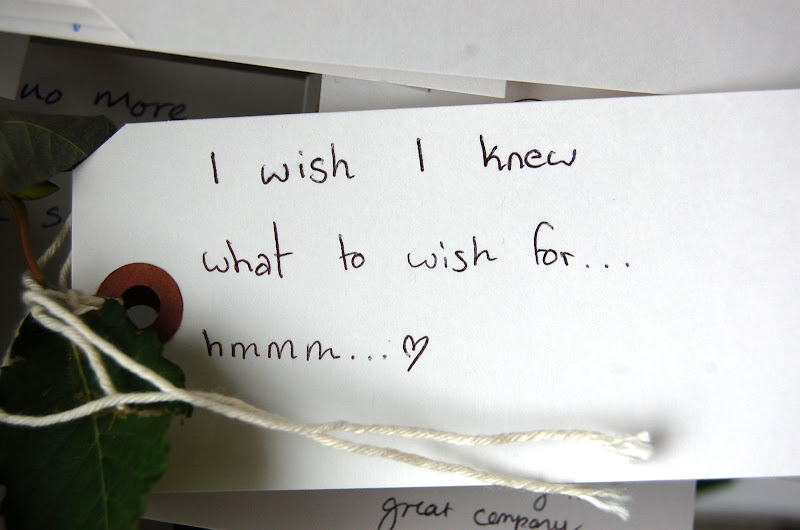 no more
I wish I knew
what to wish for...
hmmm...♡
great company